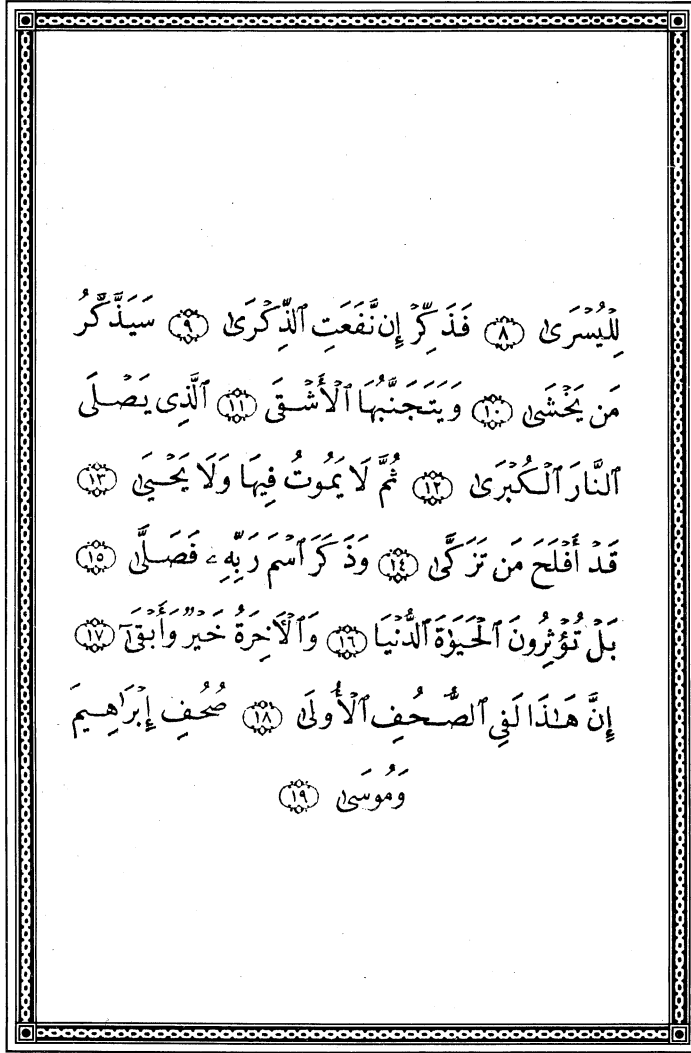 لِلْيُسْرَىٰ ۝٨ فَذَكِّرْ إِن نَّفَعَتِ ٱلذِّكْرَىٰ ۝٩ سَيَذَّكَّرُ
مَن يَخْشَىٰ ۝١٠ وَيَتَجَنَّبُهَا ٱلْأَشْقَى ۝١١ ٱلَّذِى يَصْلَى
ٱلنَّارَ ٱلْكُبْرَىٰ ۝١٢ ثُمَّ لَا يَمُوتُ فِيهَا وَلَا يَحْيَىٰ ۝١٣
قَدْ أَفْلَحَ مَن تَزَكَّىٰ ۝١٤ وَذَكَرَ ٱسْمَ رَبِّهِۦ فَصَلَّىٰ ۝١٥
بَلْ تُؤْثِرُونَ ٱلْحَيَوٰةَ ٱلدُّنْيَا ۝١٦ وَٱلْأَخِرَةُ خَيْرٌ وَأَبْقَىٰٓ ۝١٧
إِنَّ هَٰذَا لَفِى ٱلصُّحُفِ ٱلْأُولَىٰ ۝١٨ صُحُفِ إِبْرَٰهِيمَ
وَمُوسَىٰ ۝١٩